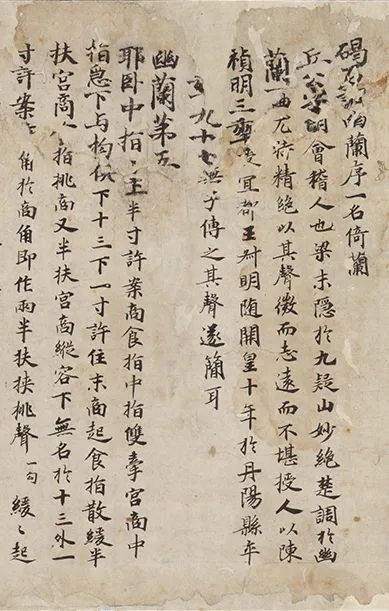 碣蘭序一名倚蘭
丘公字明會稽人也梁末隱於九疑山妙絕楚調於幽
蘭一曲尤特精絕以其聲微而志遠而不堪授人以陳
禎明三年宜都王叔明随開皇十年於丹陽縣卒
九十七無子傳之其聲遂簡耳
幽蘭第五
耶卧中指上半寸許案商食指中指雙牽宮商中
指急下与拘俱下十三下一寸許住末商起食指散緩半
扶宮商食指挑商又半扶宮商縱容下無名於十三外一
寸許案商角於商角即作兩半扶挾挑聲一句緩〻起